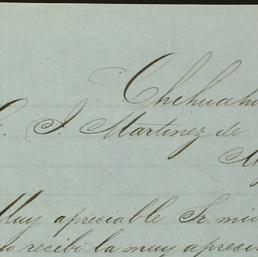 Chihuahu
C. J. Martinez de
M
Muy apreciable Sr. mio
lo recibi la muy apreci